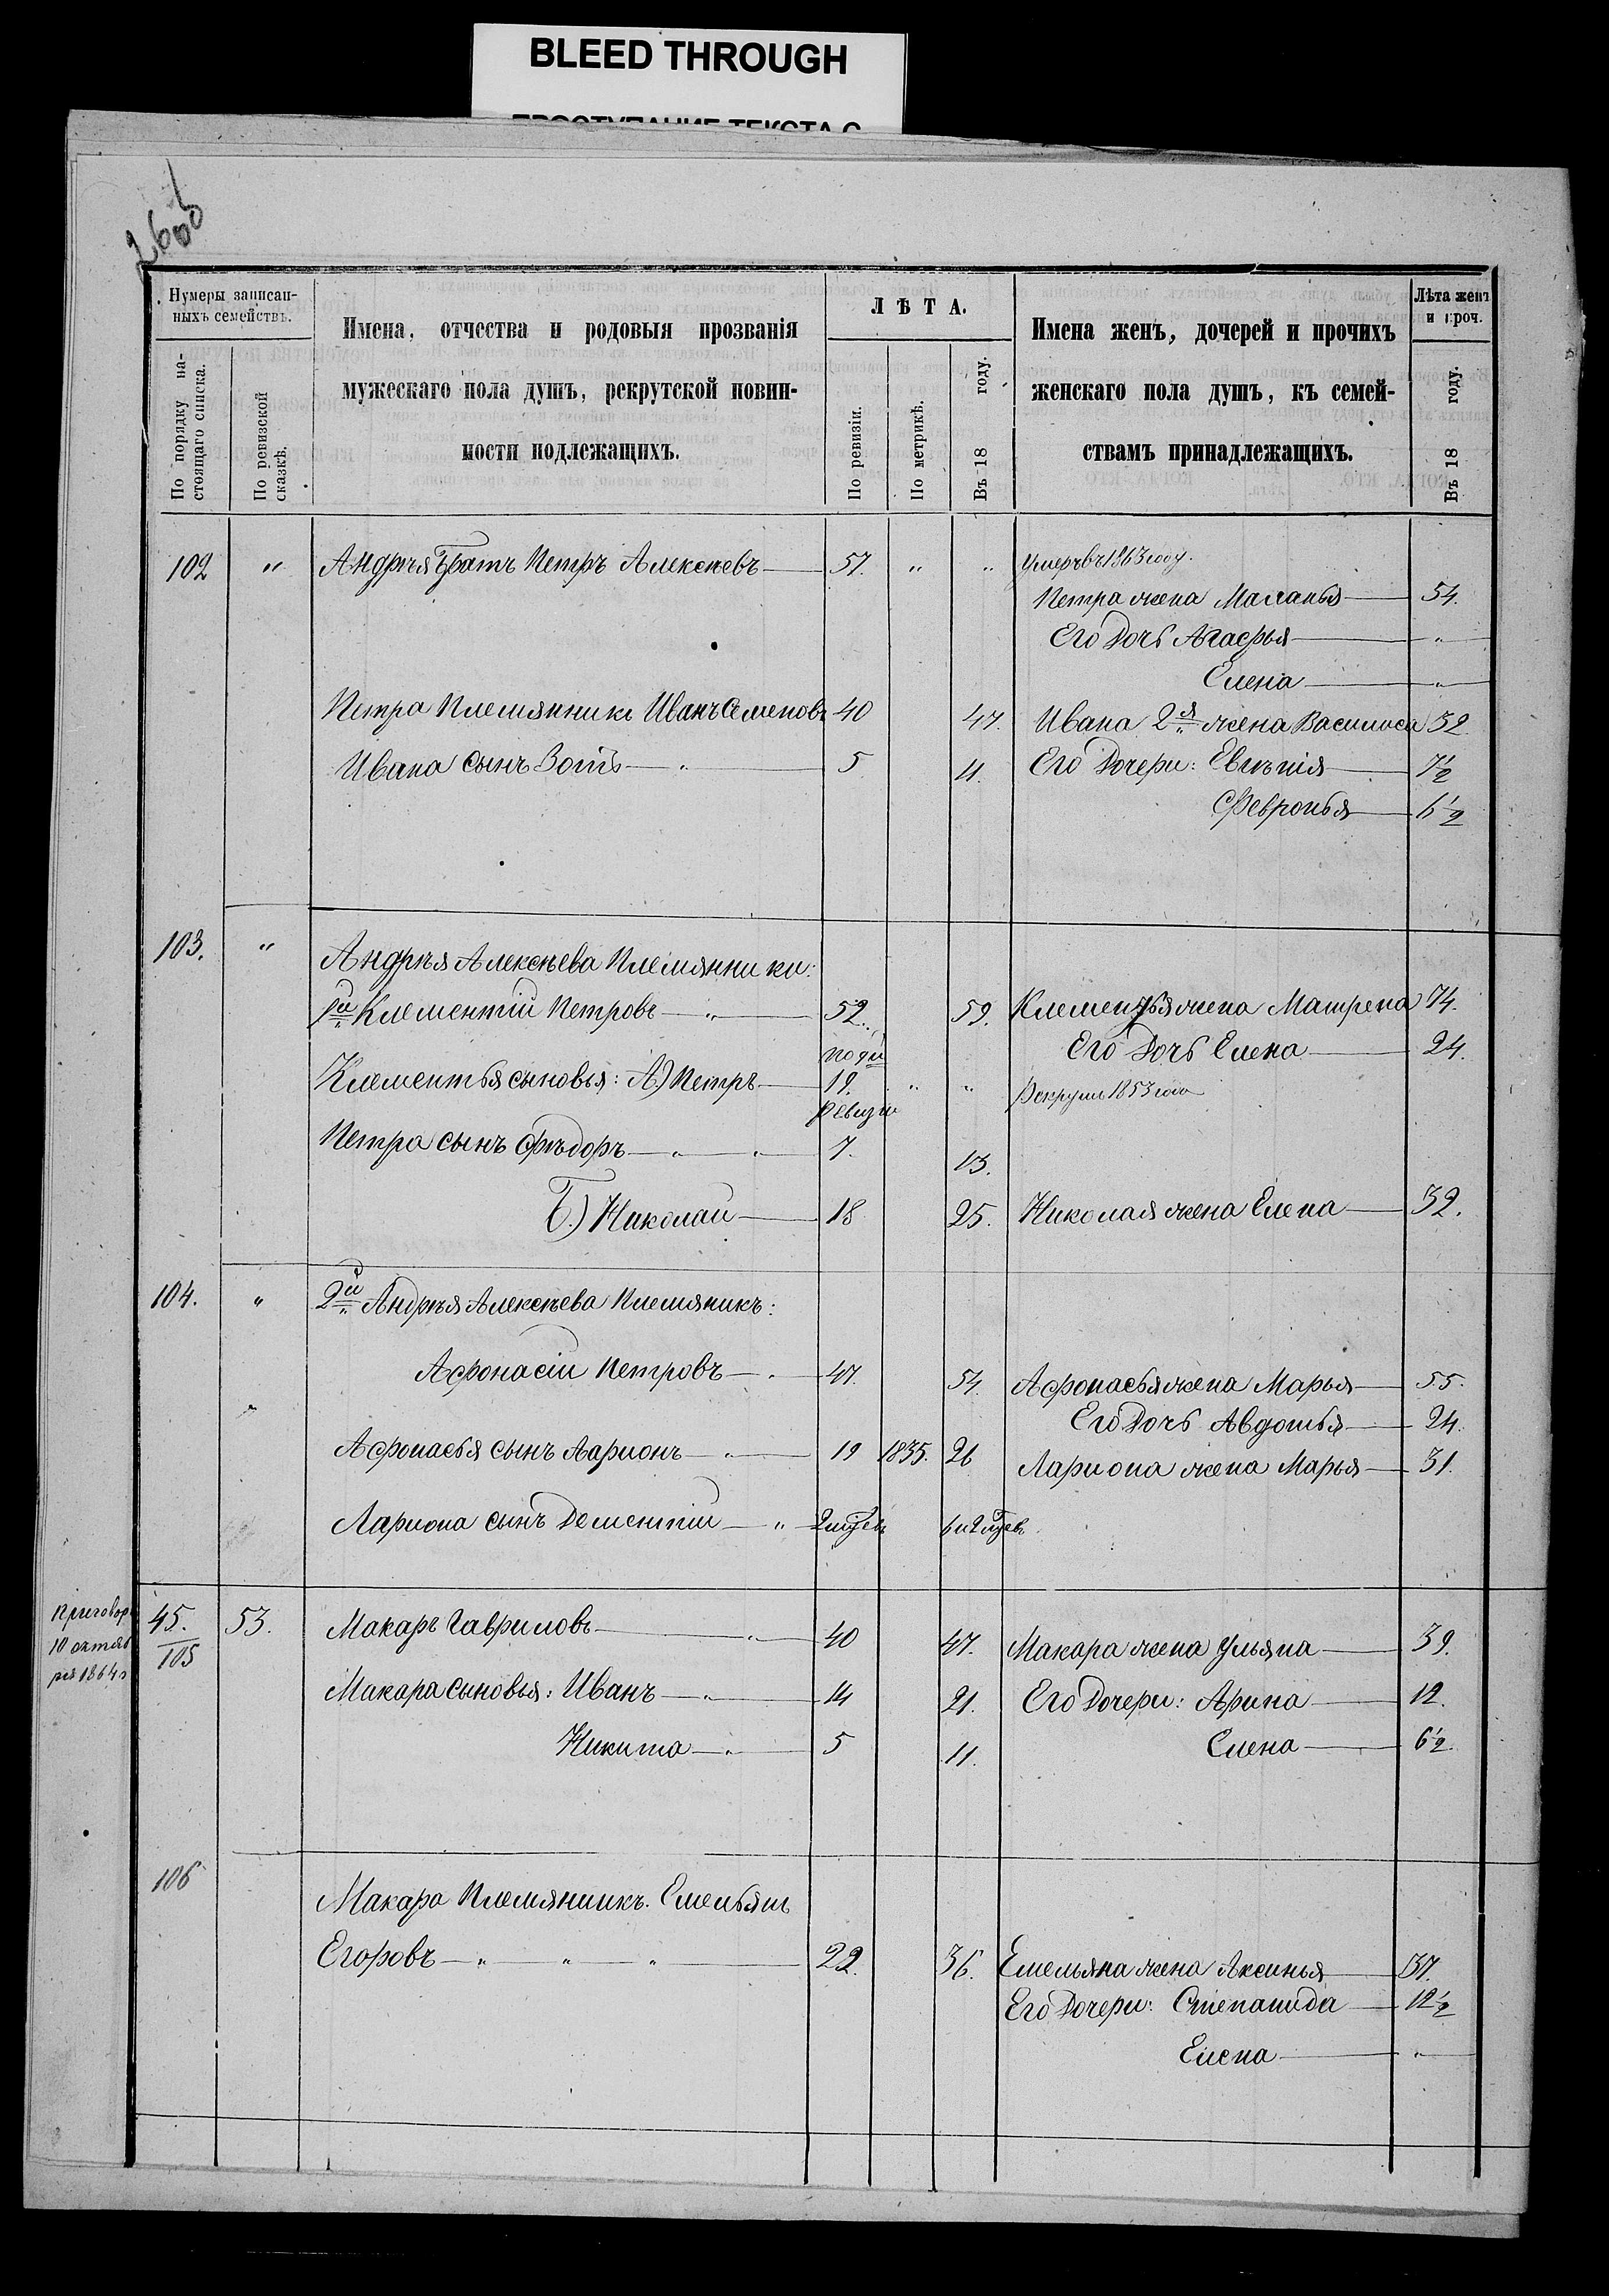 BLEED THROUGH
Нумеры записан-
ныхъ семействъ.
По порядку на-
стоящаго списка.
По ревизской
сказкѣ.
Имена, отчества и родовыя прозванія
мужескаго пола душъ, рекрутской повин-
ности подлежащихъ.
ЛѢТА.
По ревизіи.
По метрикѣ.
Въ 18 году.
Имена женъ, дочерей и прочихъ
женскаго пола душъ, къ семей-
ствамъ принадлежащихъ.
Лѣта женъ
и проч.
Въ 18 году.
102 " Андрея братъ Петръ Алексѣевъ 57. " " Умеръ въ 1863 году.
Петра жена Маланья 54.
Его дочь Агафья "
Елена "
Петра племянникъ Иванъ Семеновъ 40 47. Ивана 2я жена Василиса 52
Ивана сынъ Зотъ " 5 11. Его дочери: Евгѣнія 7½
Февронья 6½
103. " Андрея Алексѣева племянники:
1й Клементій Петровъ " 52. 59. Клементья жена Матрена 74.
Его дочь Елена 24.
Клементья сыновья: А) Петръ по 9й 19. ревизіи " " Рекрутъ 1853 года
Петра сынъ Фѣдоръ " " 7. 13.
Б.) Николай 18 25. Николая жена Елена 32.
104. " 2й Андрея Алексѣева племяникъ:
Афонасій Петровъ 47. 54. Афонасья жена Марья 55.
Его дочь Авдотья 24.
Афонасья сынъ Ларионъ " 19 1835. 26 Лариона жена Марья 31.
Лариона сынъ Дементій "
Приговоръ
10 октяб
ря 1864 г
45. 53. Макаръ Гавриловъ " 40 47. Макара жена Ульяна 39.
105
Макара сыновья: Иванъ " 14 21. Его дочери: Арина 12.
Никита " 5 11. Елена 6½
106 Макара племянникъ. Емельянъ
Егоровъ " " " 22. 36. Емельяна жена Аксинья 37.
Его дочери: Степанида 12½
Елена "